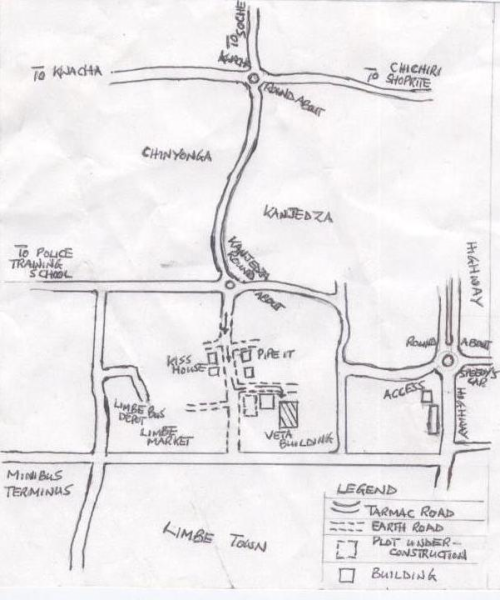 TO SOCHE
TO KWACHA
KWACHA
ROUND ABOUT
TO CHICHIRI
SHOPRITE
CHINYONGA
KANJEDZA
TO POLICE
TRAINING
SCHOOL
KANJEDZA
ROUND
ABOUT
HIGHWAY
ROUND ABOUT
KISS
HOUSE
PIPE IT
ACCESS
HIGHWAY
LIMBE BUS
DEPOT
LIMBE
MARKET
VETA
BUILDING
MINIBUS
TERMINUS
LIMBE TOWN
LEGEND
TARMAC ROAD
EARTH ROAD
PLOT UNDER-
CONSTRUCTION
BUILDING